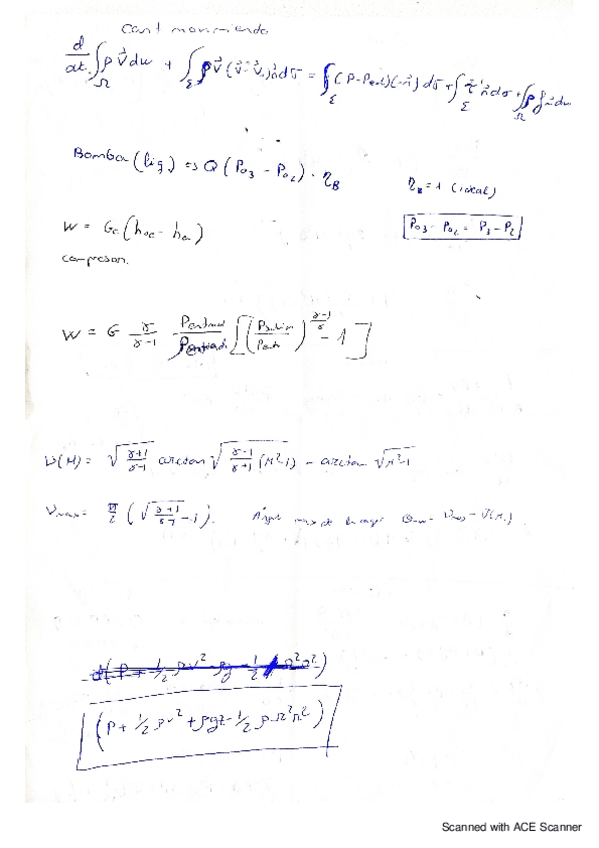 Cant movimiento
d/dt ∫_Ω ρ v⃗ dω + ∫_Σ ρ v⃗ (v⃗ - v⃗_c) n⃗ dσ = ∫_Σ (P - P_ext)(-n⃗) dσ + ∫_Σ τ⃗' n⃗ dσ + ∫_Ω ρ f⃗_m dω
Bomba (liq.) => Q (P_03 - P_02) · η_B
η_B = 1 (ideal)
P_03 - P_02 = P_3 - P_2
W = G_c (h_0c - h_0a)
compresor.
W = G γ/(γ-1) P_entrad/ρ_entrad [(P_salida/P_entr)^((γ-1)/γ) - 1]
ν(M) = √((γ+1)/(γ-1)) arctan √((γ-1)/(γ+1) (M²-1)) - arctan √(M²-1)
ν_max = π/2 (√((γ+1)/(γ-1)) - 1). θ_max = ν_max - ν(M_1)
(P + 1/2 ρv² + ρgz - 1/2 ρ Ω²r²)
Scanned with ACE Scanner